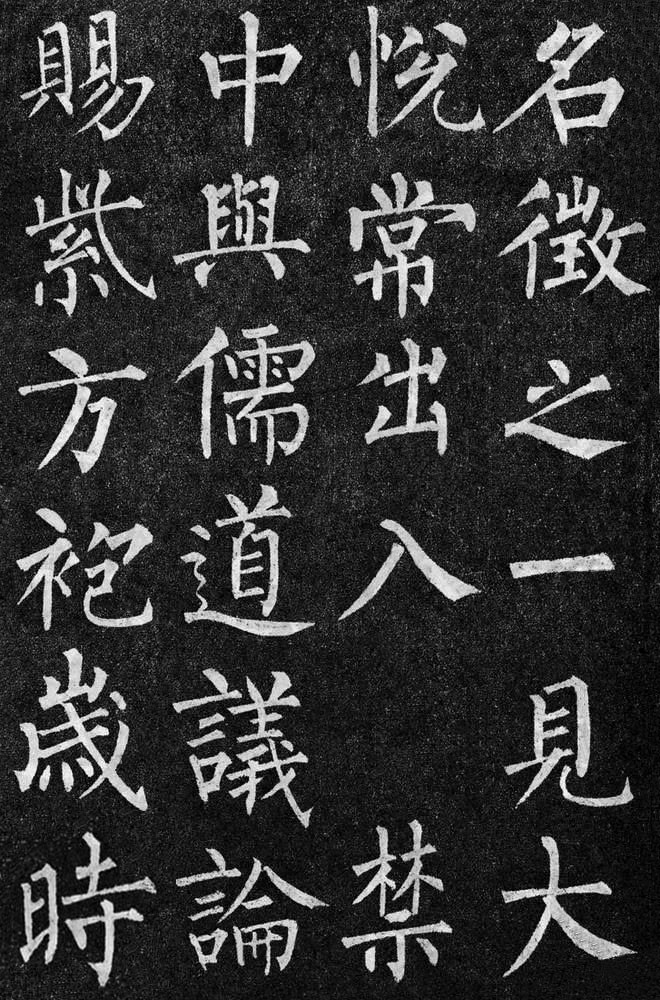 名徵之一見大
悅常出入禁
中與儒道議論
賜紫方袍歲時